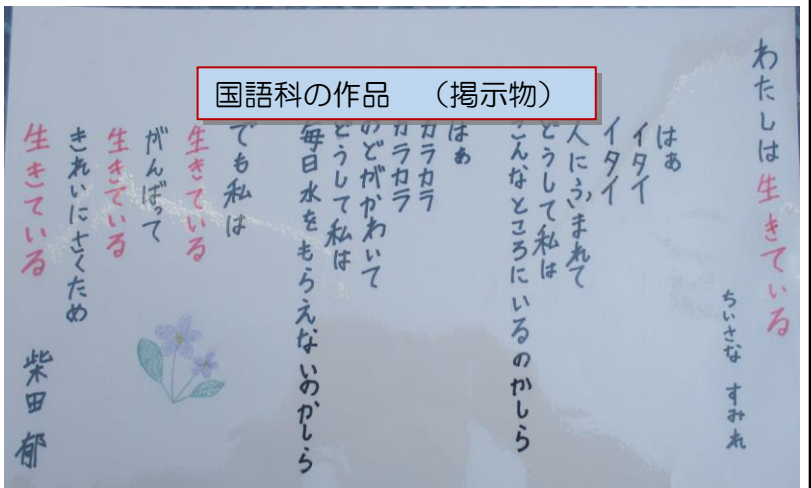 国語科の作品　（掲示物）
わたしは生きている
ちいさな すみれ
はぁ
イタイ
イタイ
人にふまれて
どうして私は
こんなところにいるのかしら
はぁ
カラカラ
カラカラ
のどがかわいて
どうして私は
毎日水をもらえないのかしら
でも私は
生きている
がんばって
生きている
きれいにさくため
生きている
柴田 郁